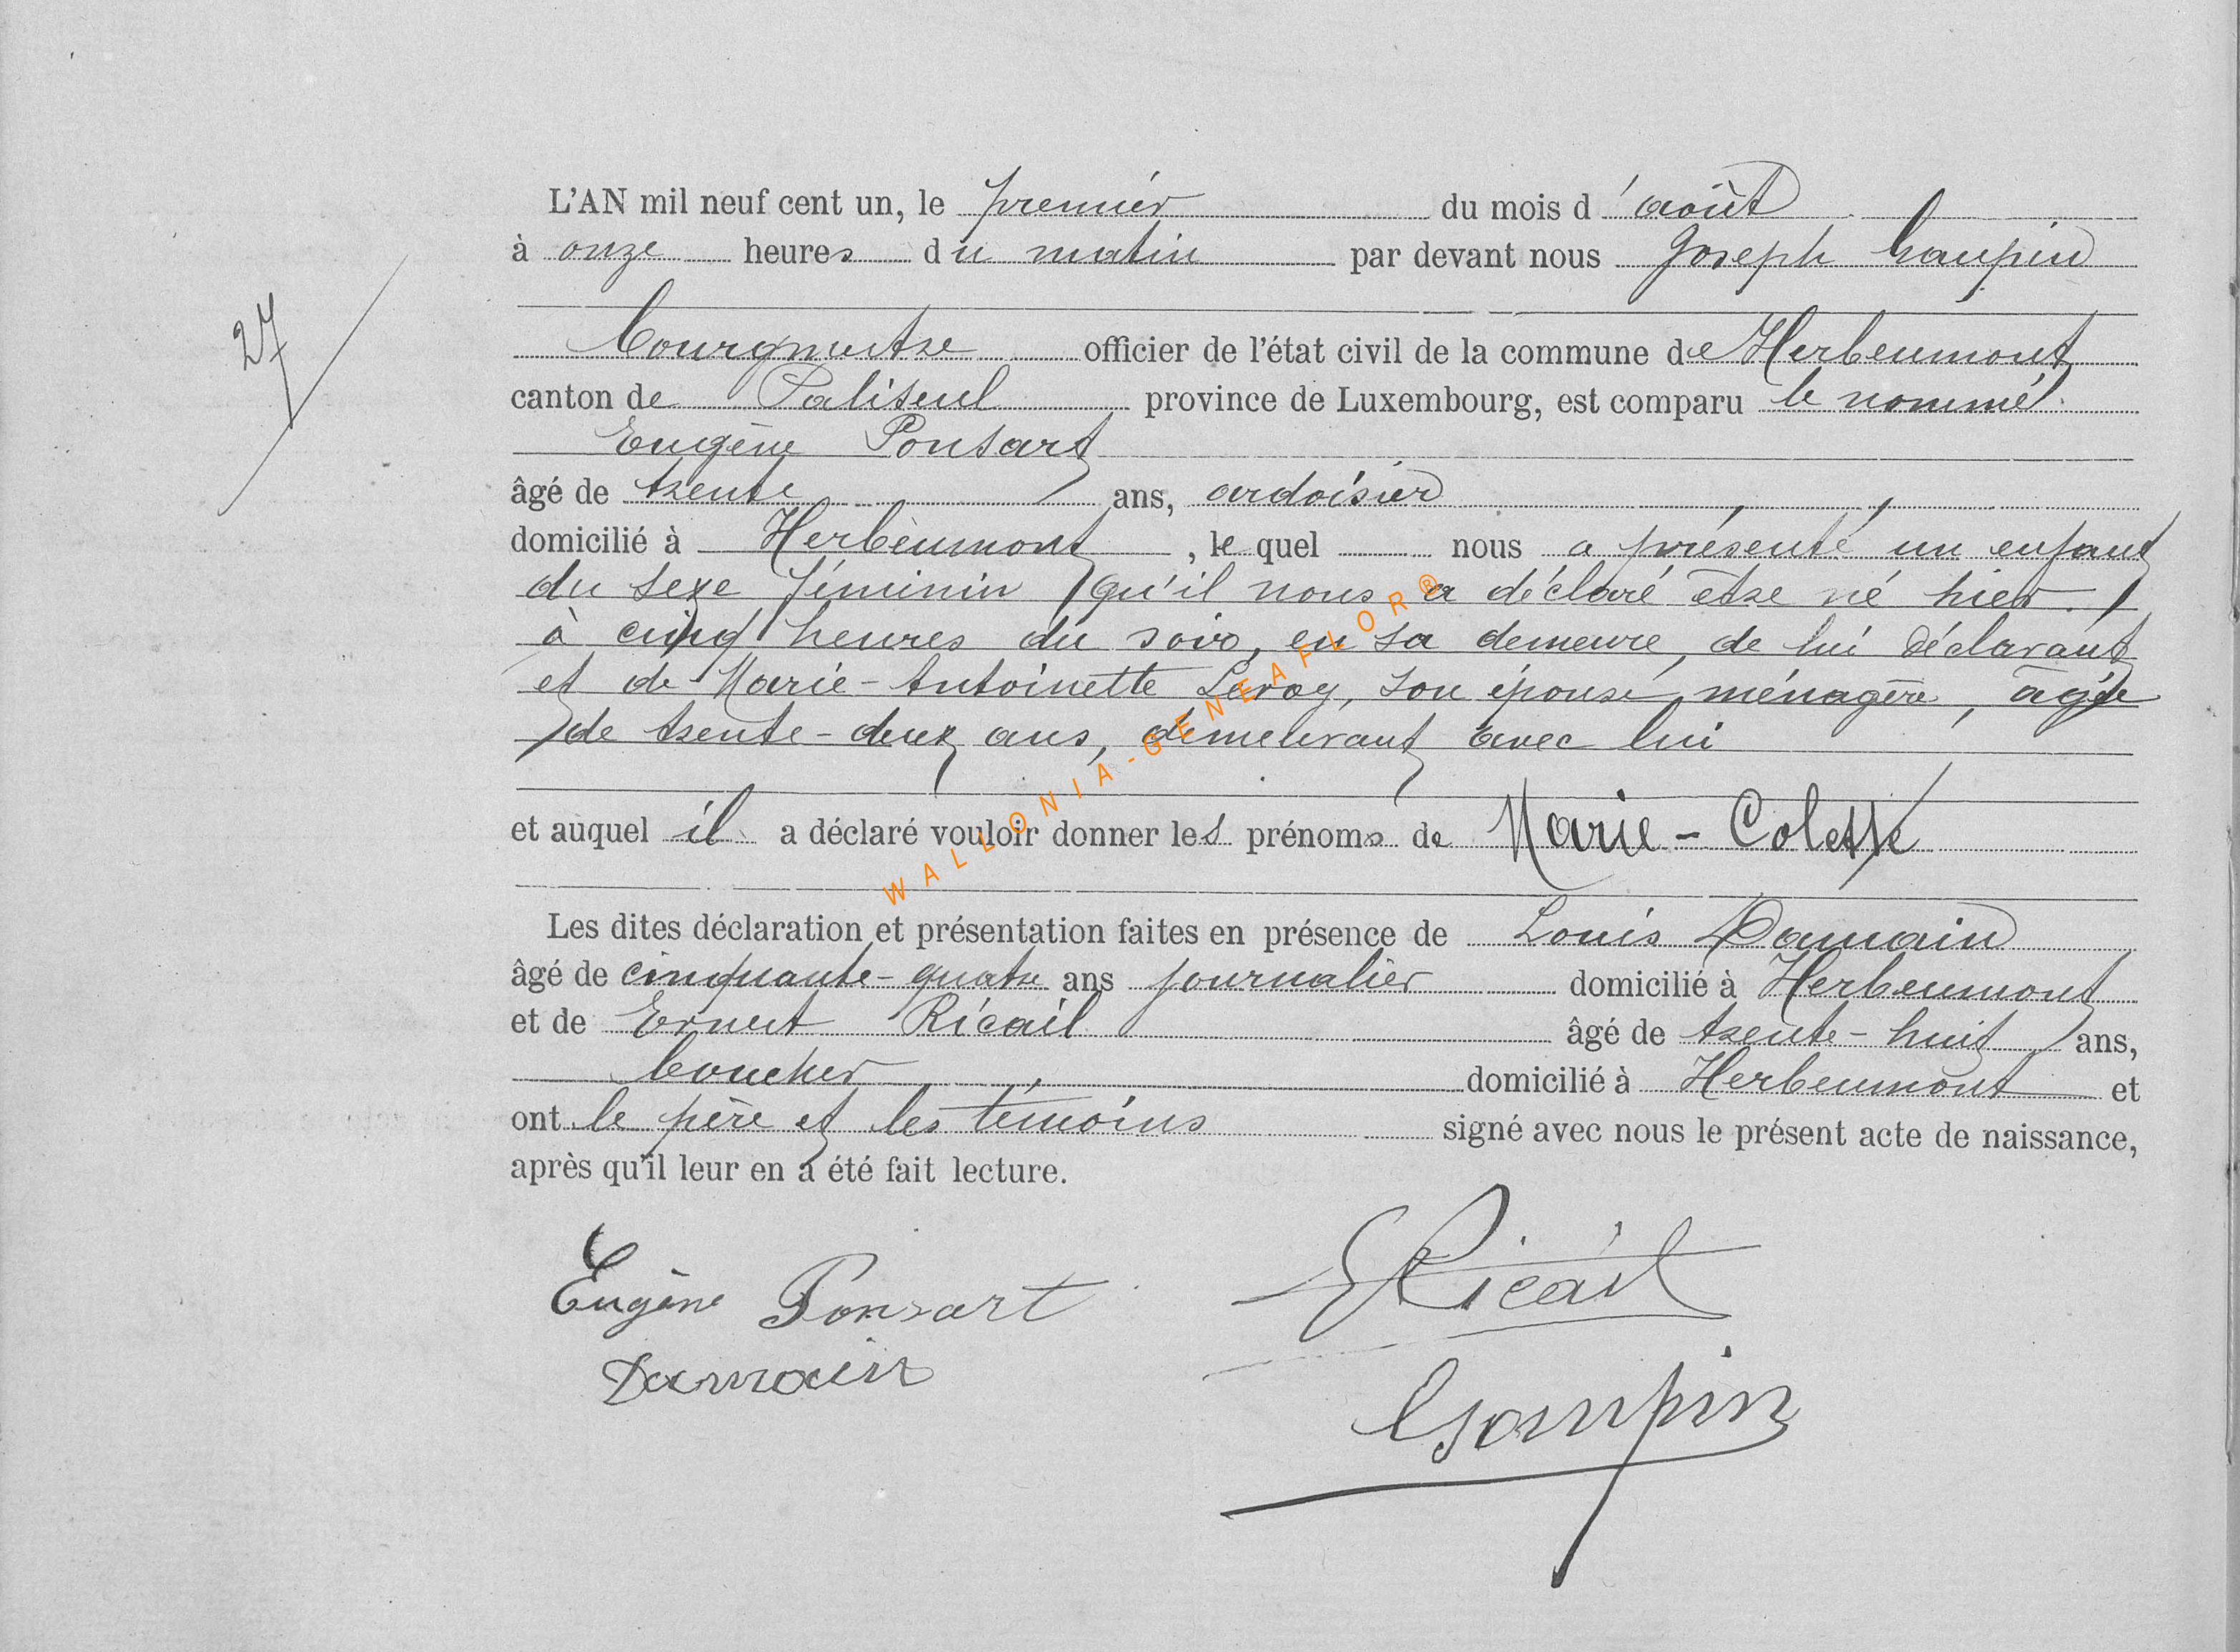 L'AN mil neuf cent un, le premier du mois d'août
à onze heures du matin par devant nous Joseph
27
bourgmestre officier de l'état civil de la commune de Herbeumont
canton de Paliseul province de Luxembourg, est comparu le nommé
Eugène Ponsart
âgé de trente ans, ardoisier
domicilié à Herbeumont, le quel nous a présenté un enfant
du sexe féminin qu'il nous a déclaré être né hier
à cinq heures du soir, en sa demeure, de lui déclarant
et de Marie-Antoinette Leroy, son épouse, ménagère, âgée
de trente-deux ans, demeurant avec lui
et auquel il a déclaré vouloir donner les prénoms de Marie-Colette
WALLONIA-GENEAFLOR®
Les dites déclaration et présentation faites en présence de Louis Damain
âgé de cinquante-quatre ans journalier domicilié à Herbeumont
et de Ernest Ricail âgé de trente-huit ans,
boucher domicilié à Herbeumont et
ont le père et les témoins signé avec nous le présent acte de naissance,
après qu'il leur en a été fait lecture.
Eugène Ponsart
E Ricail
Damain